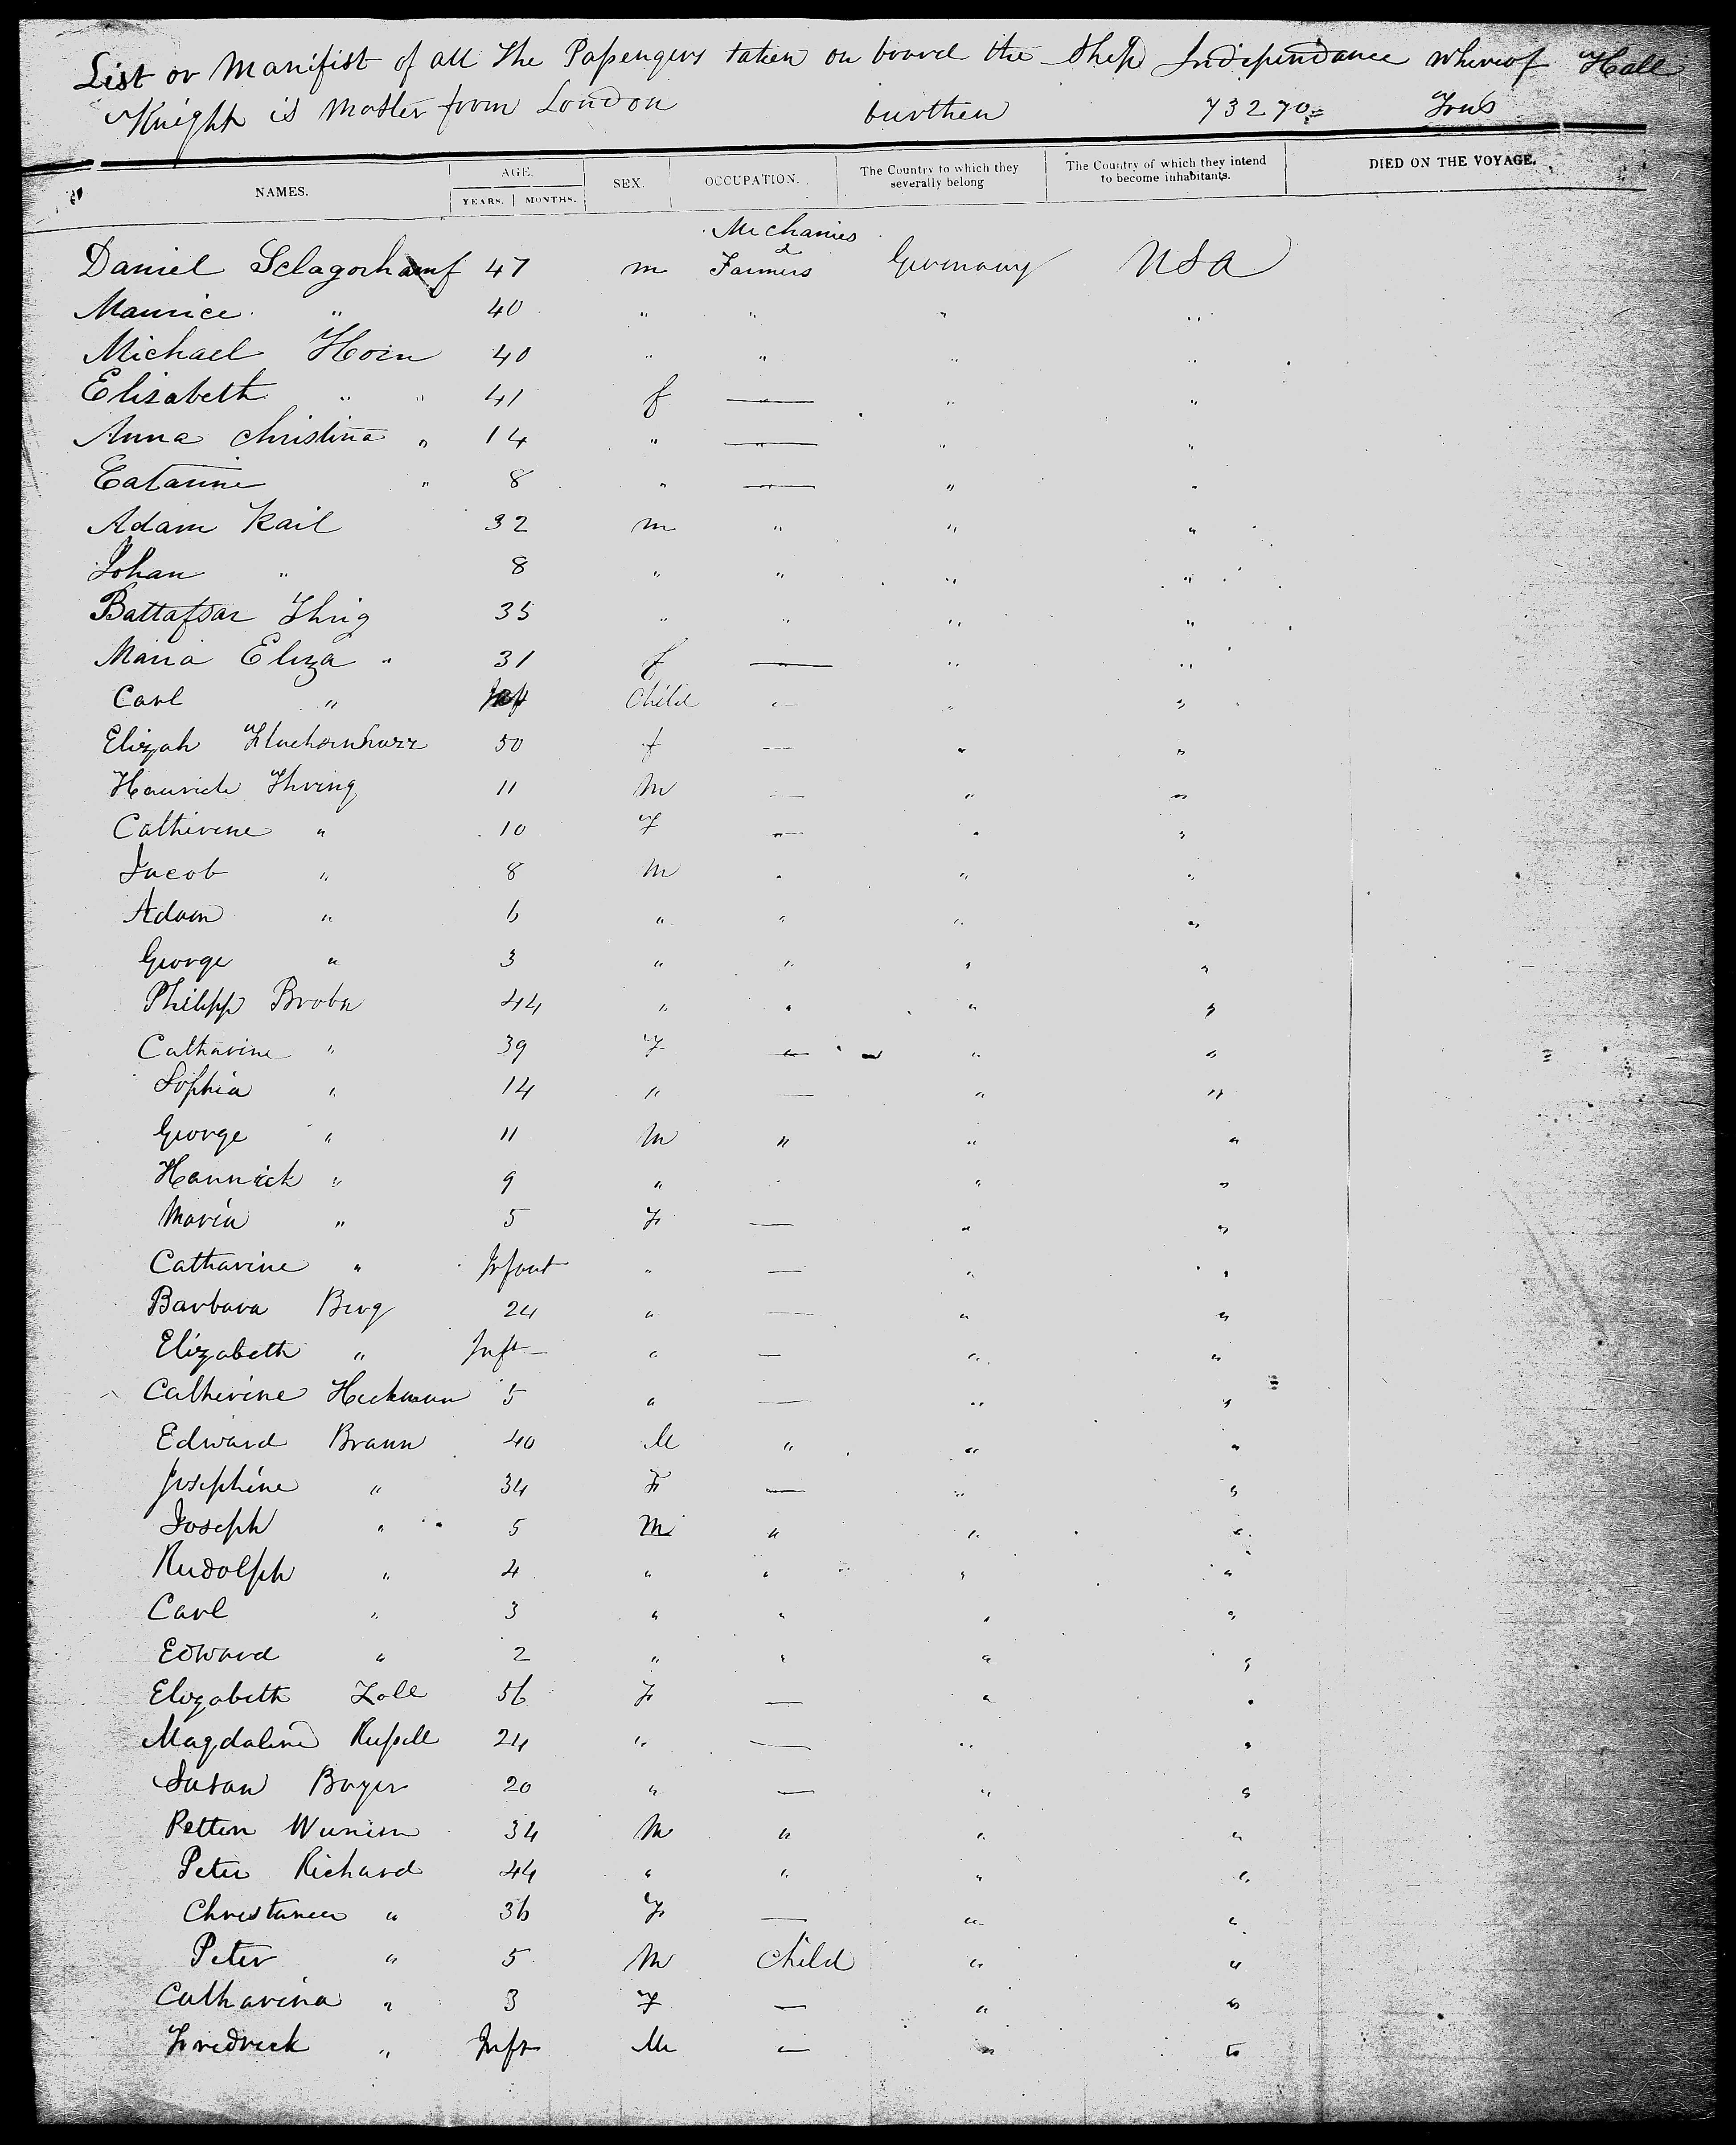 List or Manifist of all the Passengers taken on board the Ship Independance whereof Hall
Knight is Master from London burthen 732 70 Tons
NAMES. AGE. YEARS. MONTHS. SEX. OCCUPATION. The Country to which they severally belong The Country of which they intend to become inhabitants. DIED ON THE VOYAGE.
Mechanics
&
Daniel 47 m Farmers Germany USA
Maurice " 40 " " " "
Michael Horn 40 " " " "
Elisabeth " " 41 f — " "
Anna Christina " 14 " — " "
Catarine " 8 " — " "
Adam Kail 32 m " " "
Johan " 8 " " " "
Battassar Ihrig 35 " " " "
Maria Eliza " 31 f — " "
Carl " Inft Child — " "
Elizah 50 f — " "
Ihring 11 m — " "
Catherine " 10 F — " "
Jacob " 8 m " " "
Adam " 6 " " " "
George " 3 " " " "
Philipp Brobn 44 " " " "
Catharine " 39 F — " "
Sophia " 14 " — " "
George " 11 m " " "
Hannrick " 9 " " "
Maria " 5 F — " "
Catharine " Infant " — " "
Barbara Berg 24 " — " "
Elizabeth " Inft " — " "
Catherine Heckmann 5 " — " "
Edward Braun 40 M " " "
Josephine " 34 F — " "
Joseph " 5 M " " "
Rudolph " 4 " " " "
Carl " 3 " " " "
Edward " 2 " " " "
Elizabeth Zoll 56 F — " "
Magdaline Russell 24 " — " "
Susan Boyer 20 " — " "
Petter 34 M " " "
Peter Richard 44 " " " "
" 36 F — " "
Peter " 5 M Child " "
Catharina " 3 F — " "
Fredreck " Inft M — " "